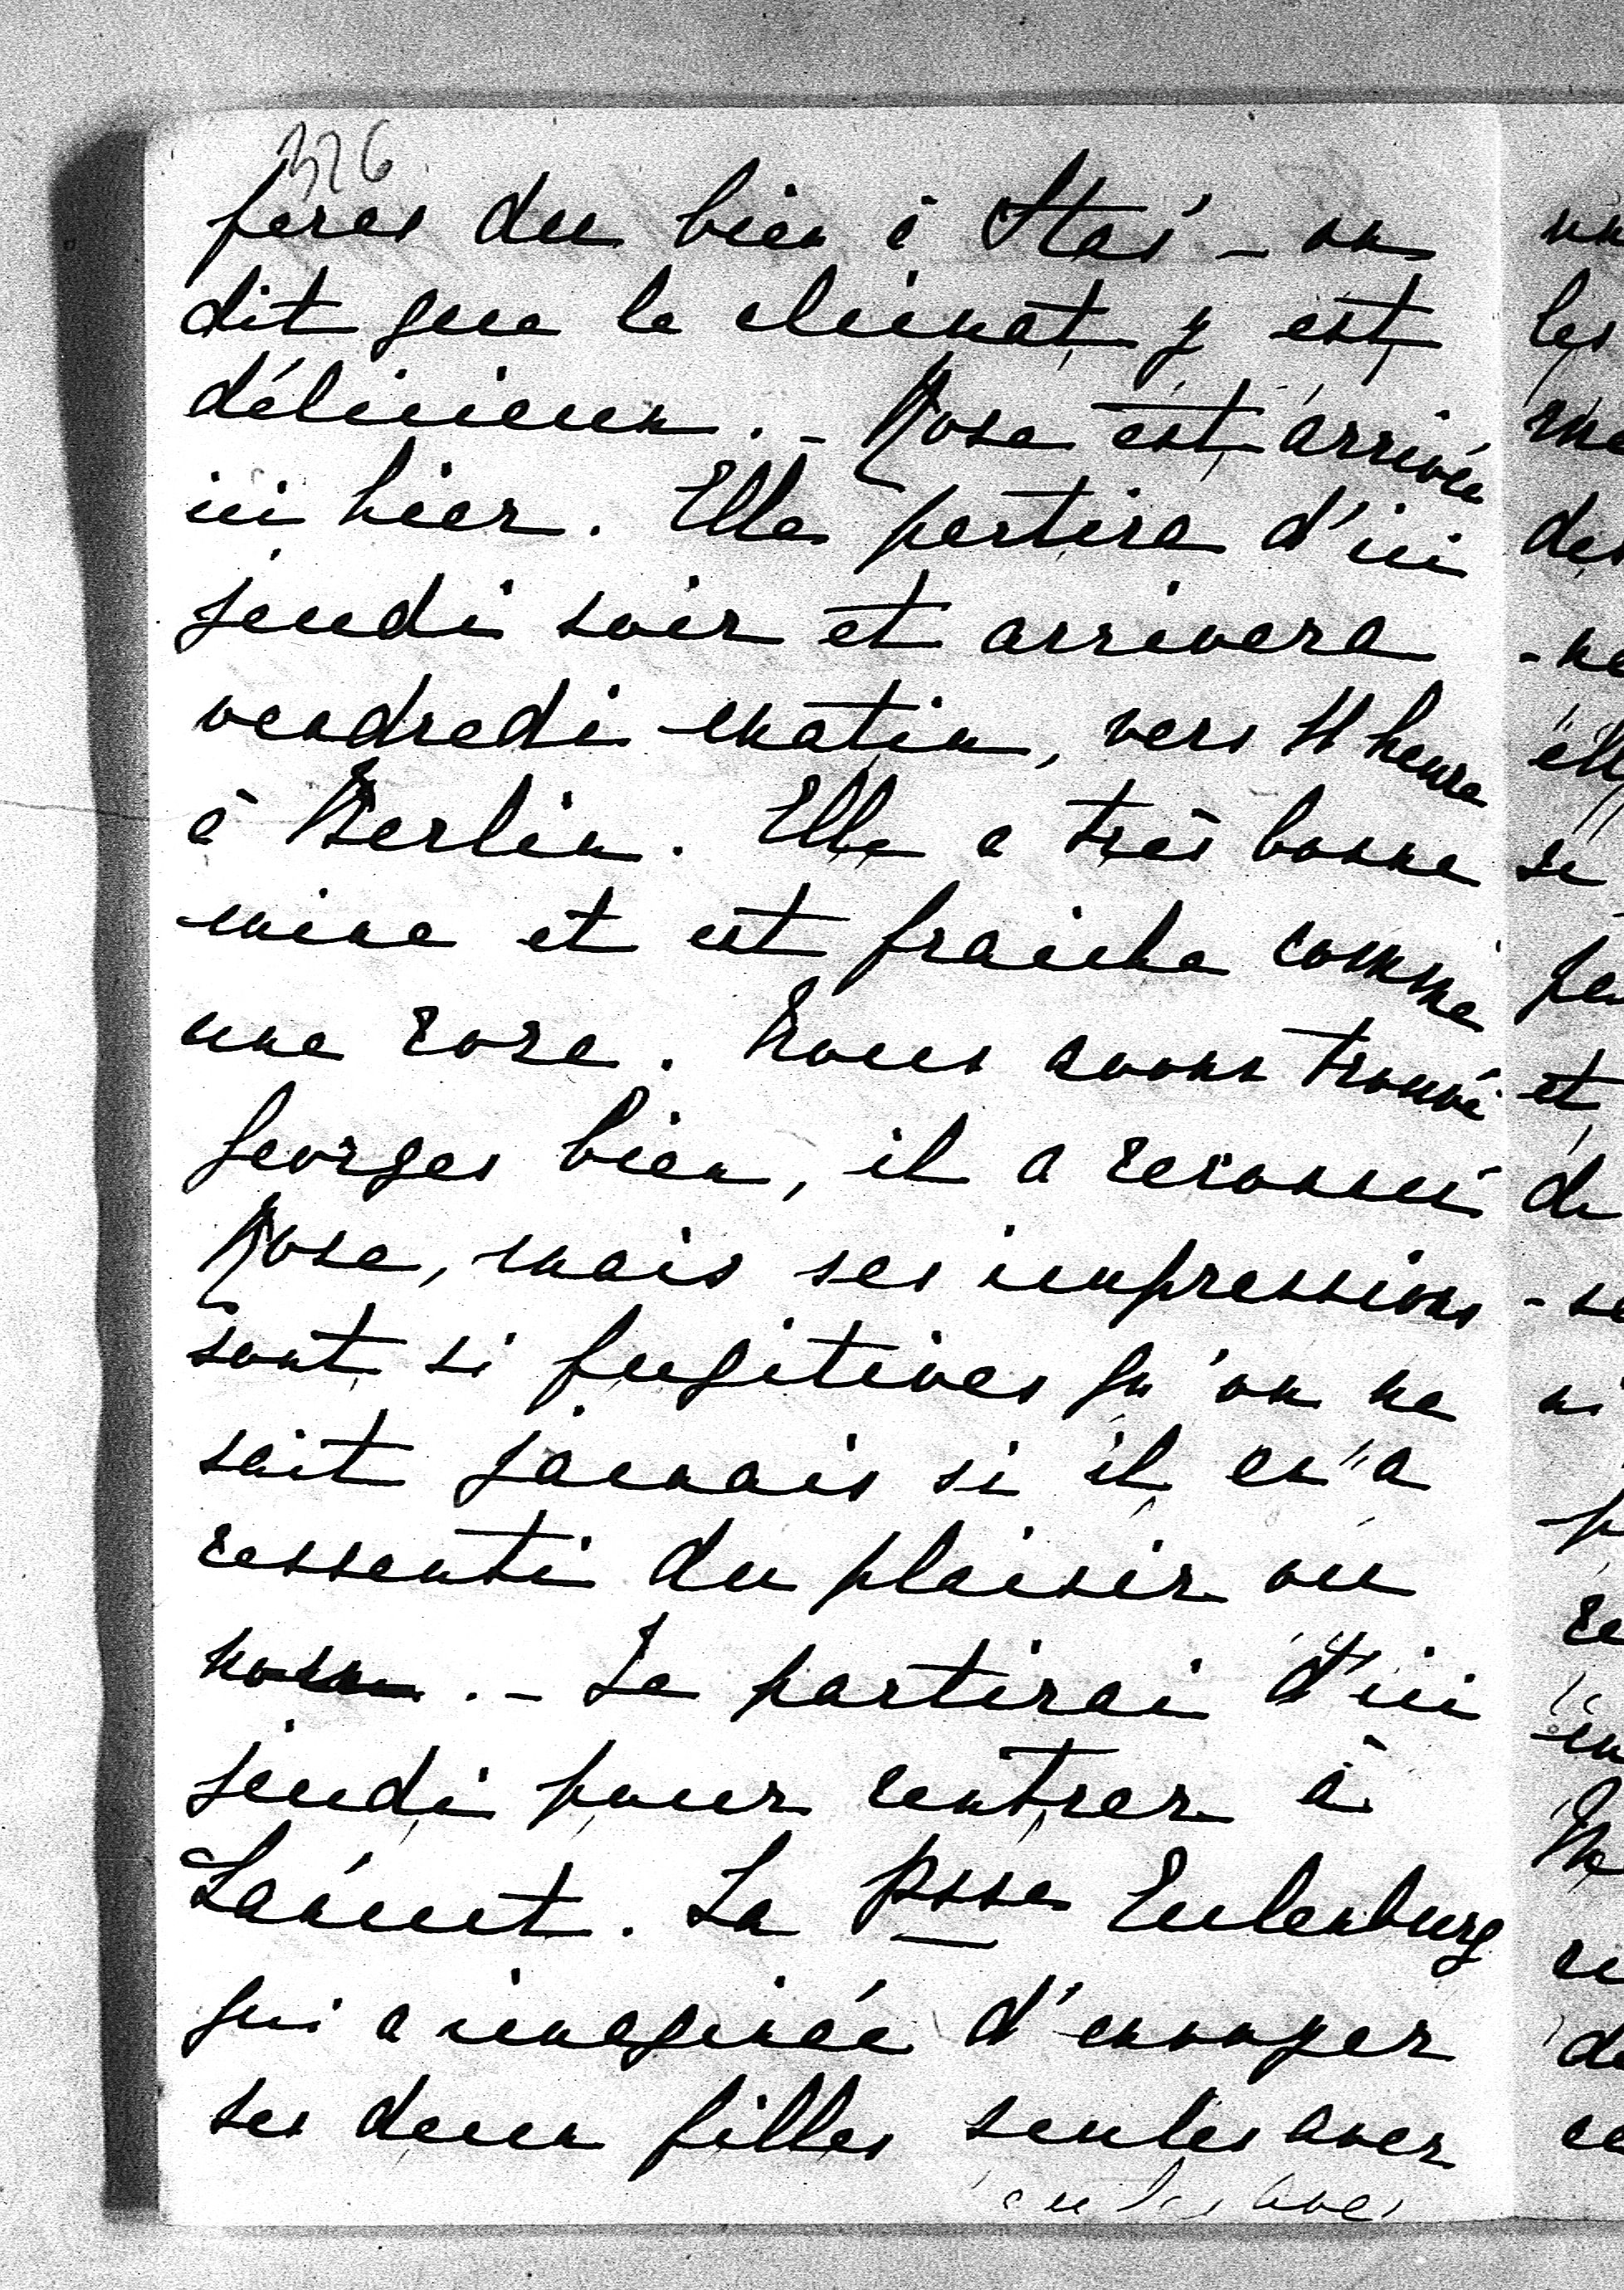 326
feras du bien à Staś – on
dit que le climat y est
délicieux. – Rose est arrivée
ici hier. Elle partira d'ici
jeudi soir et arrivera
vendredi matin, vers 11 heures
à Berlin. Elle a très bonne
mine et est fraiche comme
une rose. Nous avons trouvé
Georges bien, il a reconnu
Rose, mais ses impressions
sont si fugitives qu'on ne
sait jamais si il en a
ressenti du plaisir ou
non. – Je partirai d'ici
jeudi pour rentrer à
Łańcut. La Psse Eulenburg
qui a imaginée d'envoyer
ses deux filles seules avec